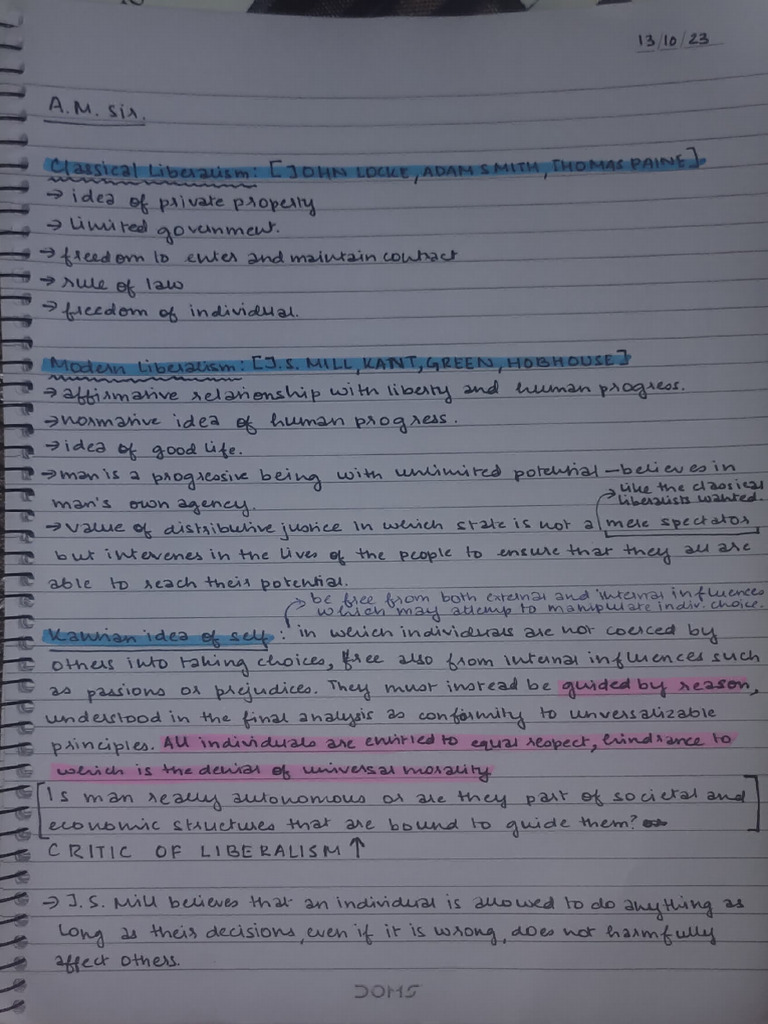 13/10/23
A.M. Sir.
Classical Liberalism: [JOHN LOCKE, ADAM SMITH, THOMAS PAINE]
→ idea of private property
→ limited government.
→ freedom to enter and maintain contract
→ rule of law
→ freedom of individual.
Modern Liberalism: [J.S. MILL, KANT, GREEN, HOBHOUSE]
→ affirmative relationship with liberty and human progress.
→ normative idea of human progress.
→ idea of good life.
→ man is a progressive being with unlimited potential – believes in
man's own agency.
→ like the classical
liberalists wanted.
→ value of distributive justice in which state is not a mere spectator
but intervenes in the lives of the people to ensure that they all are
able to reach their potential.
→ be free from both external and internal influences
which may attemp to manipulate indiv. choice.
Kantian idea of self: in which individuals are not coerced by
others into taking choices, free also from internal influences such
as passions or prejudices. They must instead be guided by reason,
understood in the final analysis as conformity to unversalizable
principles. All individuals are entitled to equal respect, hindrance to
which is the denial of universal morality
[Is man really autonomous or are they part of societal and
economic structures that are bound to guide them?]
CRITIC OF LIBERALISM ↑
→ J.S. Mill believes that an individual is allowed to do anything as
long as their decisions, even if it is wrong, does not harmfully
affect others.
DOMS